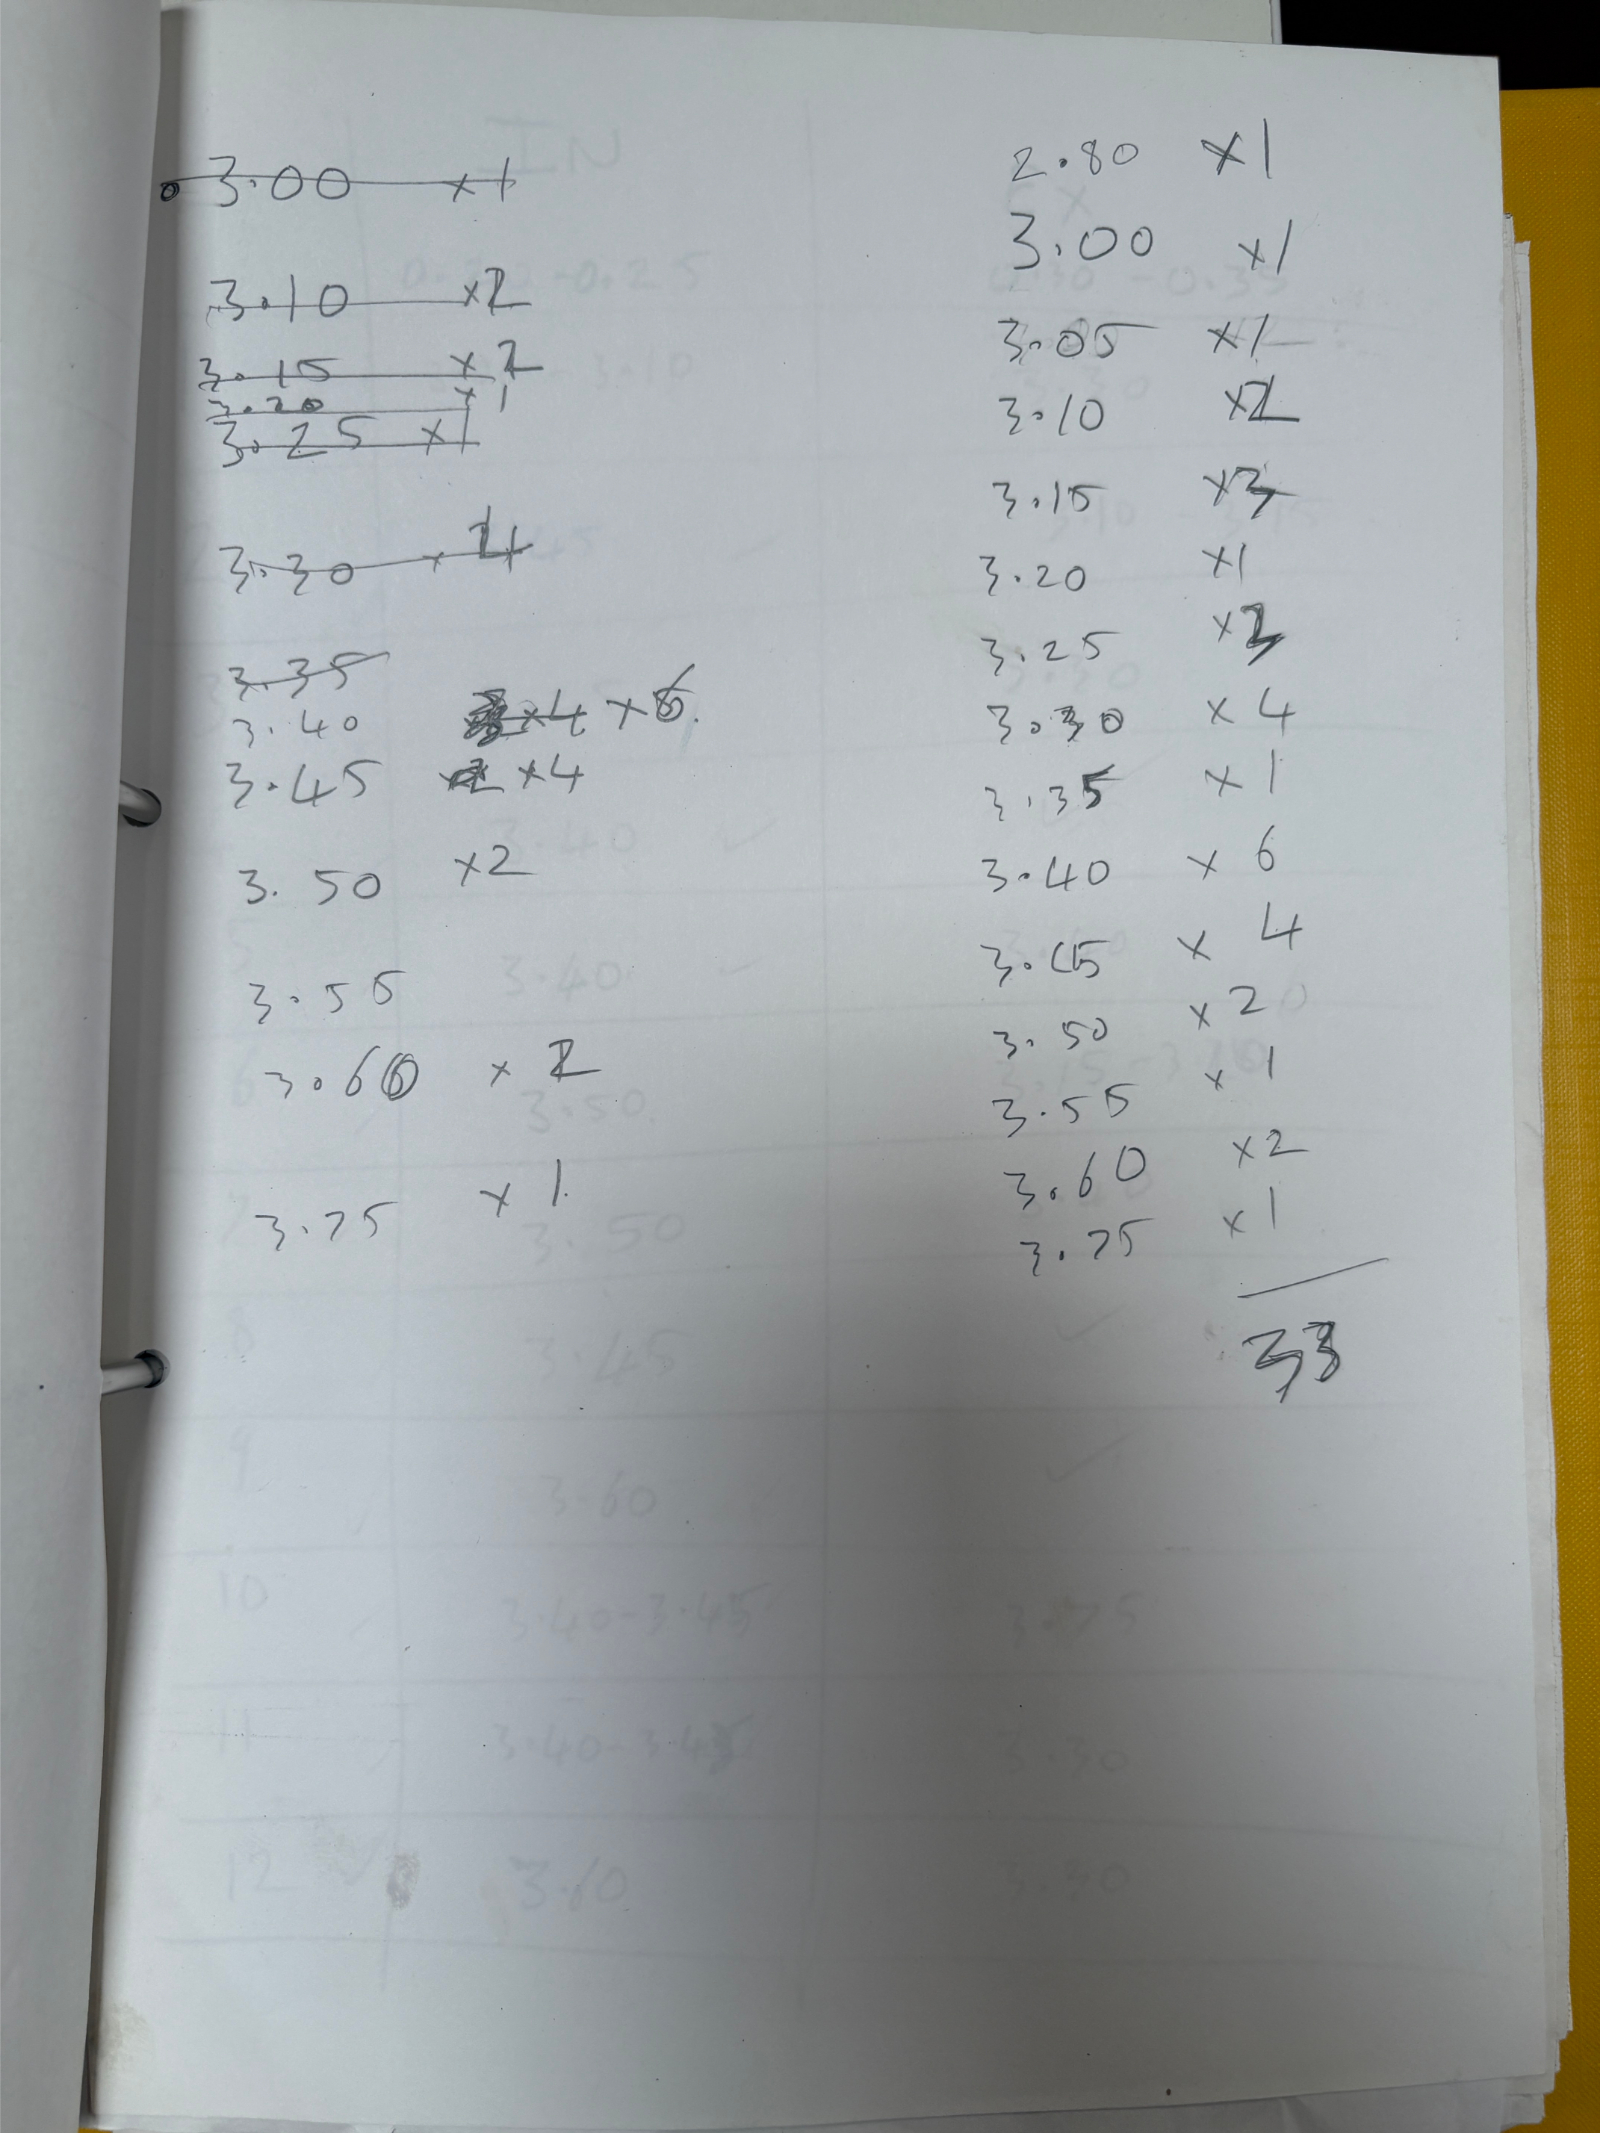 3.00 x1
3.10 x2
3.15 x2
3.20 x1
3.25 x1
3.30 x 4
3.35
3.40 x4 x6.
3.45 x2 x4
3.50 x2
3.55
3.60 x 2
3.75 x 1
2.80 x1
3.00 x1
3.05 x1
3.10 x2
3.15 x3
3.20 x1
3.25 x3
3.30 x 4
3.35 x 1
3.40 x 6
3.45 x 4
3.50 x 2
3.55 x 1
3.60 x2
3.75 x1
33